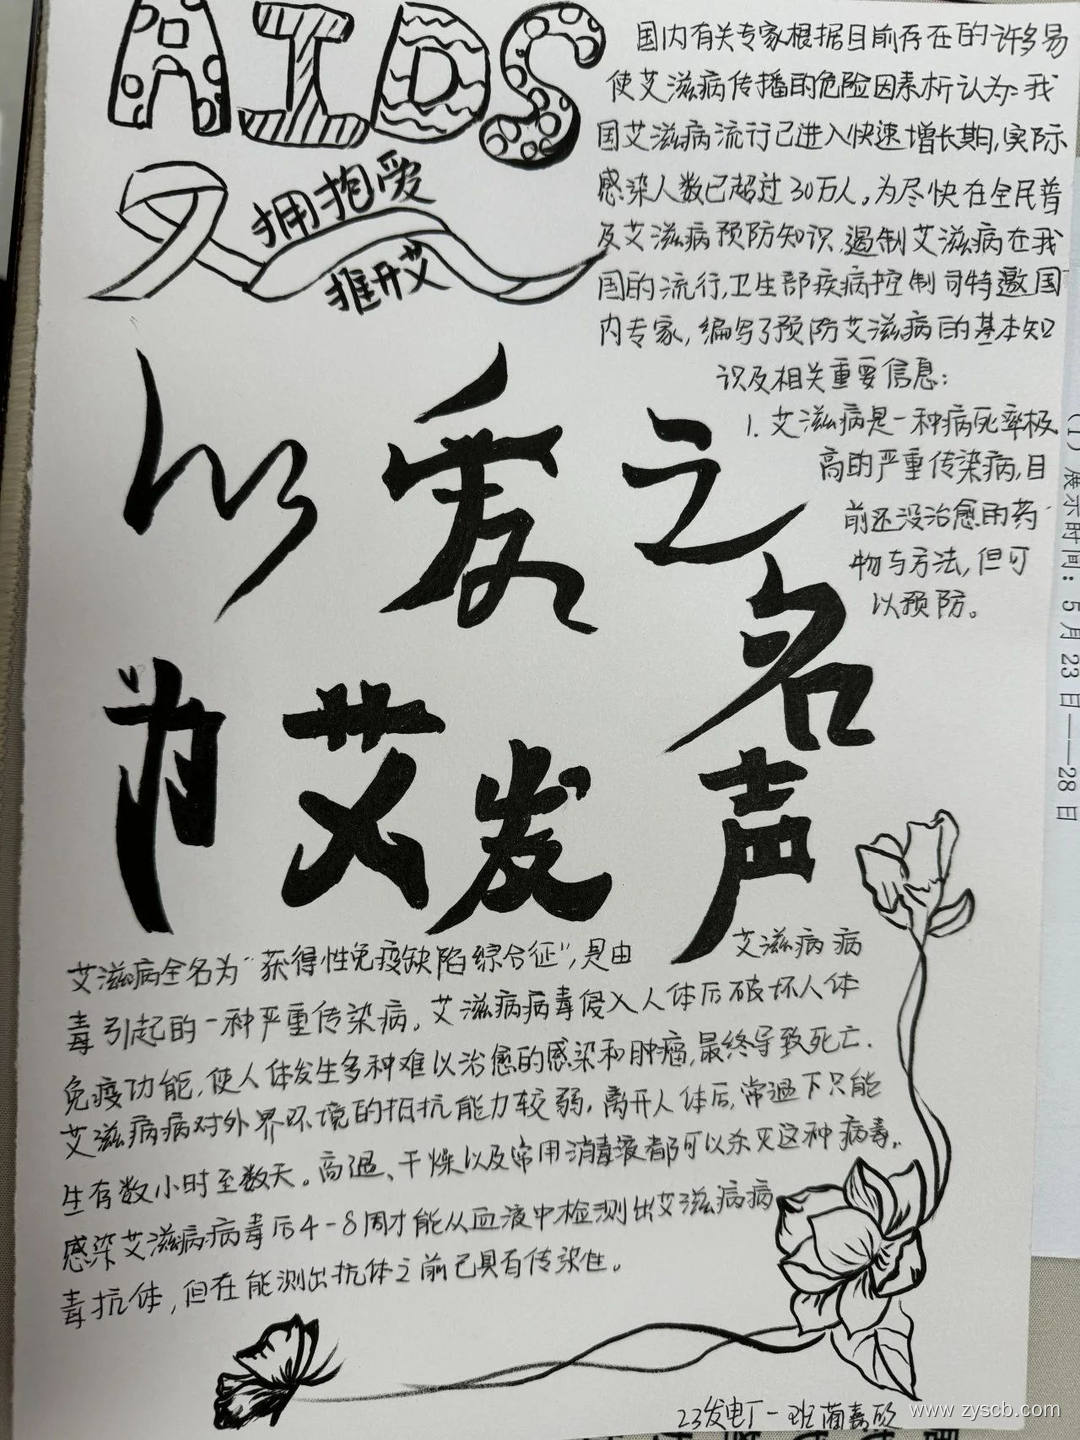 AIDS
拥抱爱
推开艾
国内有关专家根据目前存在的许多易
使艾滋病传播的危险因素析认为:我
国艾滋病流行已进入快速增长期,实际
感染人数已超过30万人。为尽快在全民普
及艾滋病预防知识,遏制艾滋病在我
国的流行,卫生部疾病控制司特邀国
内专家,编写了预防艾滋病的基本知
识及相关重要信息:
1.艾滋病是一种病死率极
高的严重传染病,目
前还没治愈的药
物与方法,但可
以预防。
以爱之名
为艾发声
艾滋病全名为“获得性免疫缺陷综合征”,是由 艾滋病病
毒引起的一种严重传染病。艾滋病病毒侵入人体后破坏人体
免疫功能,使人体发生多种难以治愈的感染和肿瘤,最终导致死亡.
艾滋病病对外界环境的抵抗能力较弱,离开人体后,常温下只能
生有数小时至数天。高温、干燥以及常用消毒液都可以杀灭这种病毒.
感染艾滋病病毒后4-8周才能从血液中检测出艾滋病病
毒抗体,但在能测出抗体之前已具有传染性。
23发电丁一班
www.zyscb.com
(1)展示时间:5月23日——28日